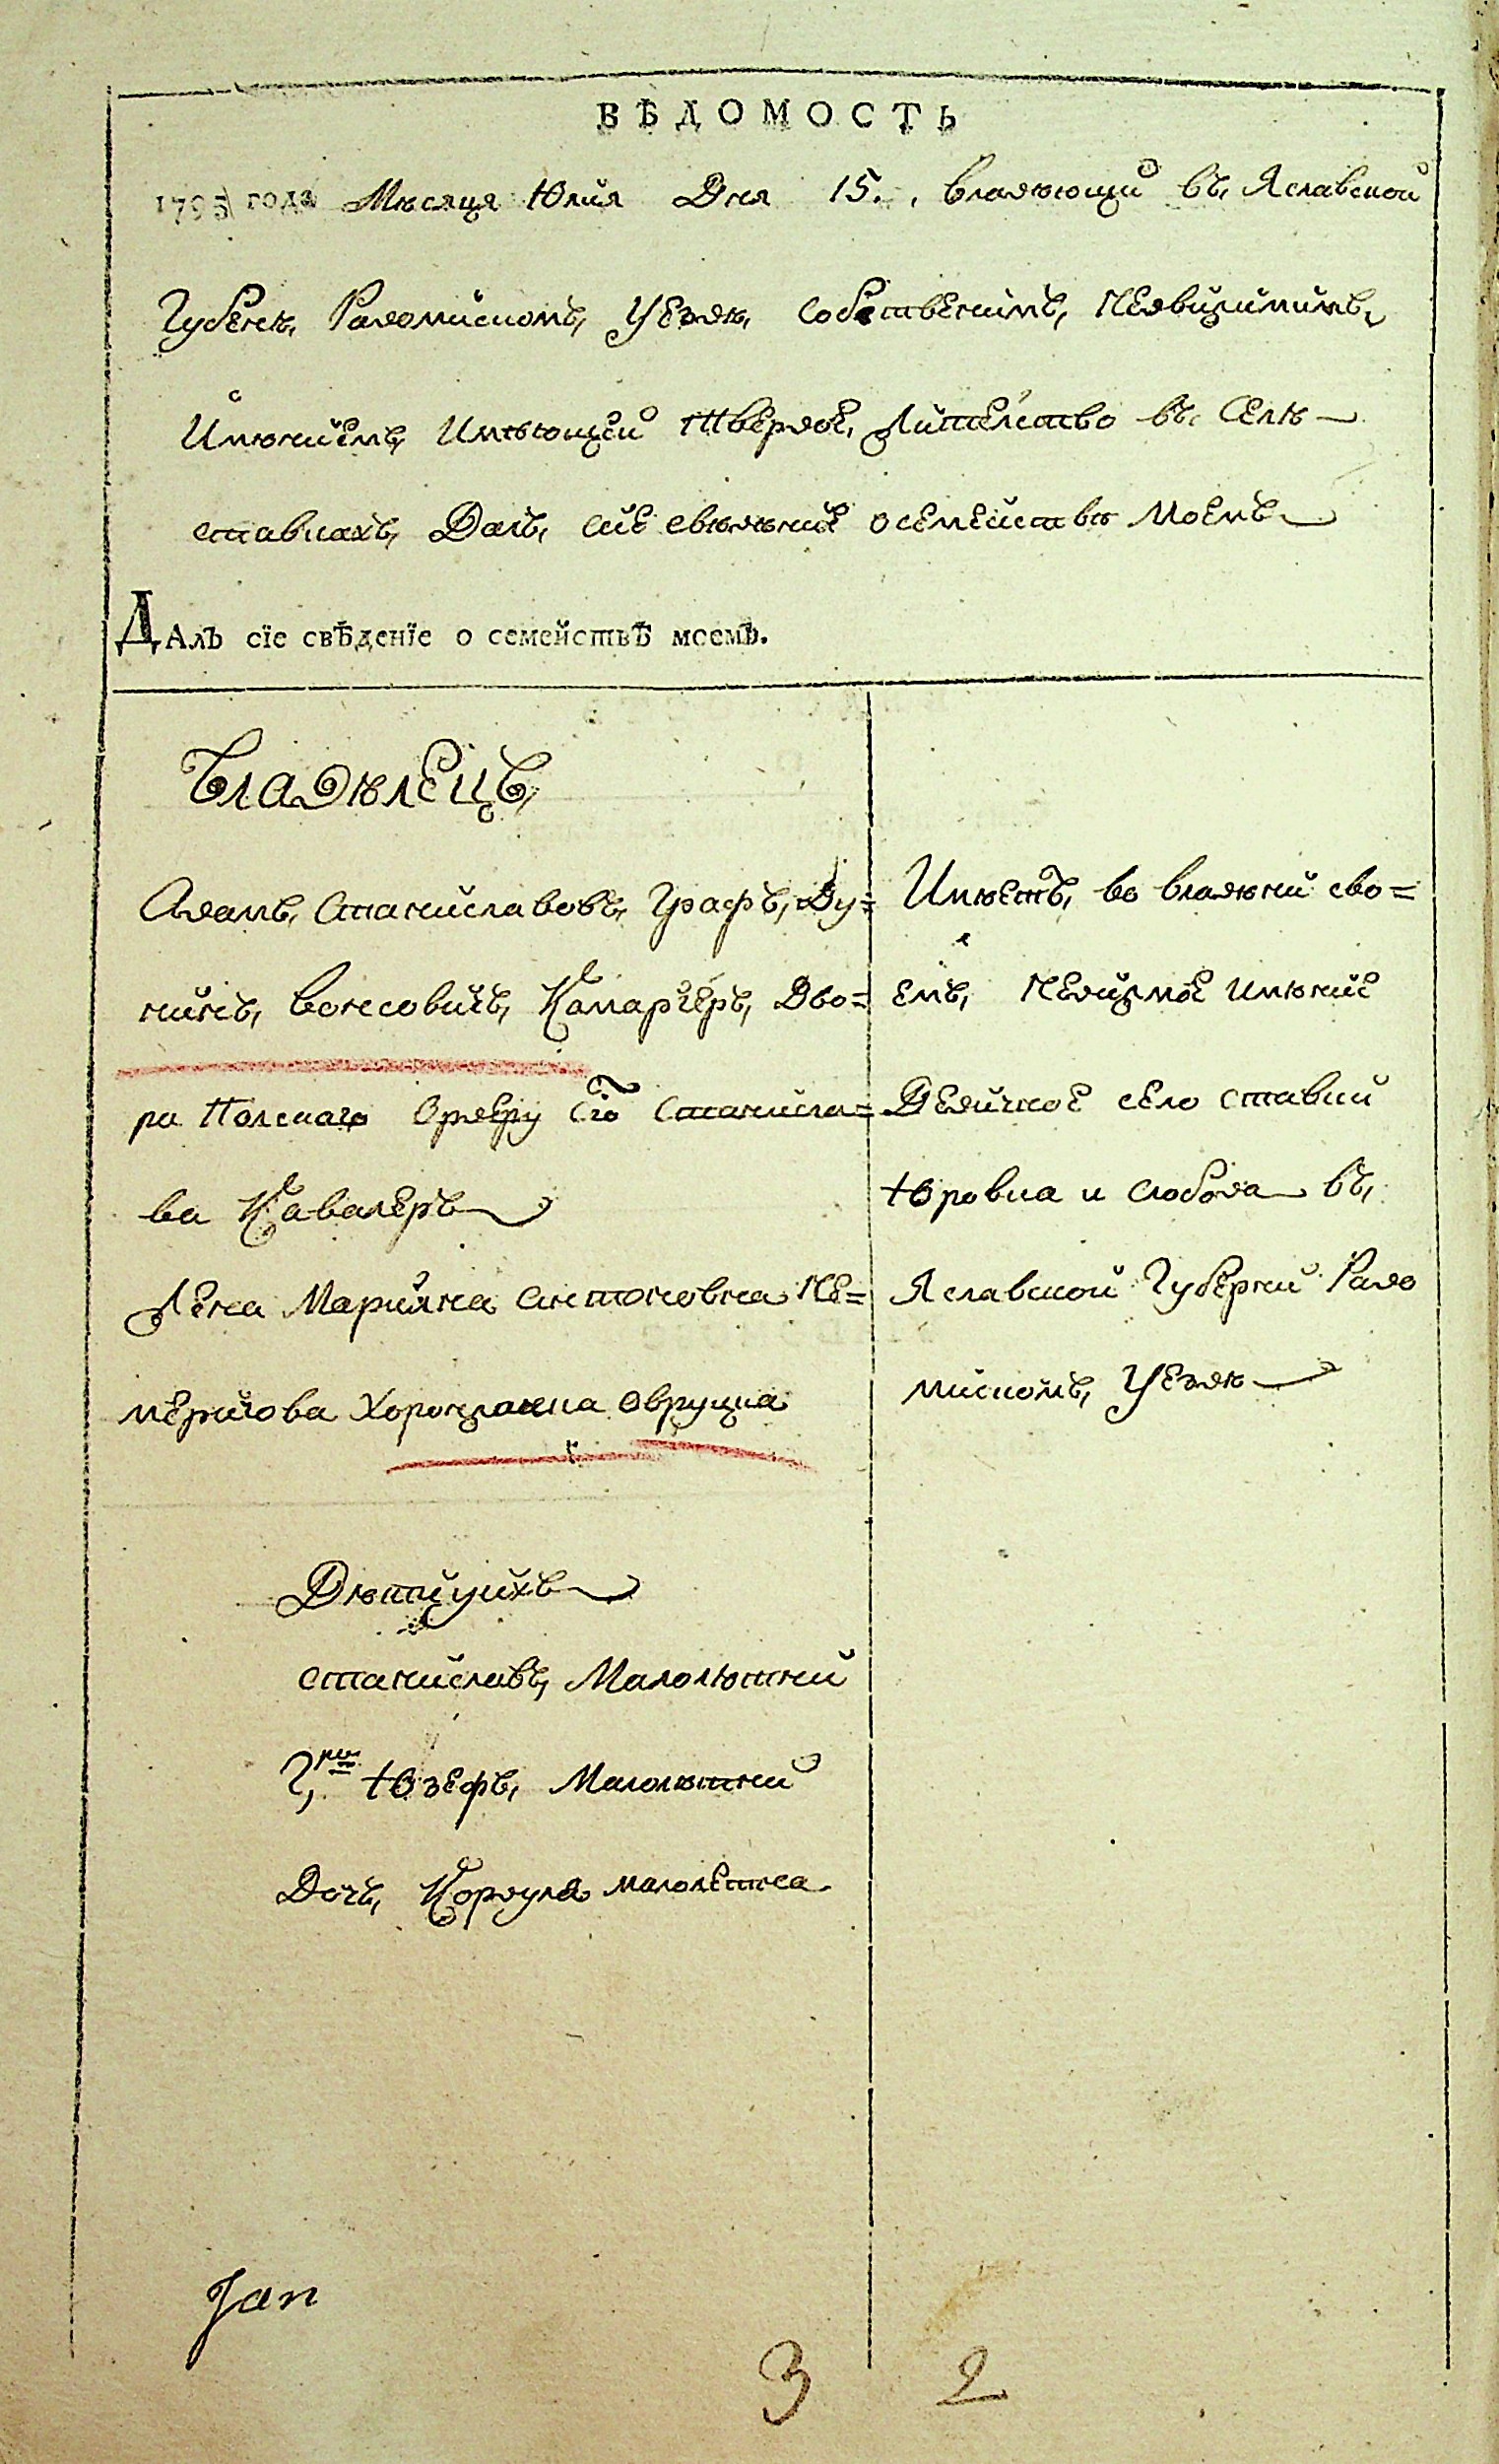 ВѢДОМОСТЬ
1795 года Мѣсяця Юлія Дня 15. владѣющій въ Яславской
Губенѣ Радомискомъ Уездѣ собственимъ Недвижимимъ
Имѣниемъ Имѣющей Твердое Жителство въ Селѣ
ставкахъ Далъ сие свѣдѣние о семействѣ Моемъ
ДАлъ сїе свѣденїе о семействѣ моемъ.
Владѣлецъ
Адамъ Станиславовъ Графъ Ду=
нинъ Вонсовичъ Камаргеръ Дво=
ра Полскаго Ордеру Сто Станисла=
ва Кавалеръ
Жена Марияна Антоновна Не=
мерицова Хоронжанка Овруцка
Дѣтиуихъ
Станиславъ Малолѣтний
Юзефъ Малолѣтний
Дочъ Кордуля малолетна
Имѣетъ во владѣнии сво=
емъ Недижмое имѣние
Дедичное село Ставки
Юровка и слобода въ
Яславской Губернии Радо
мискомъ Уездѣ
Jan
3 2